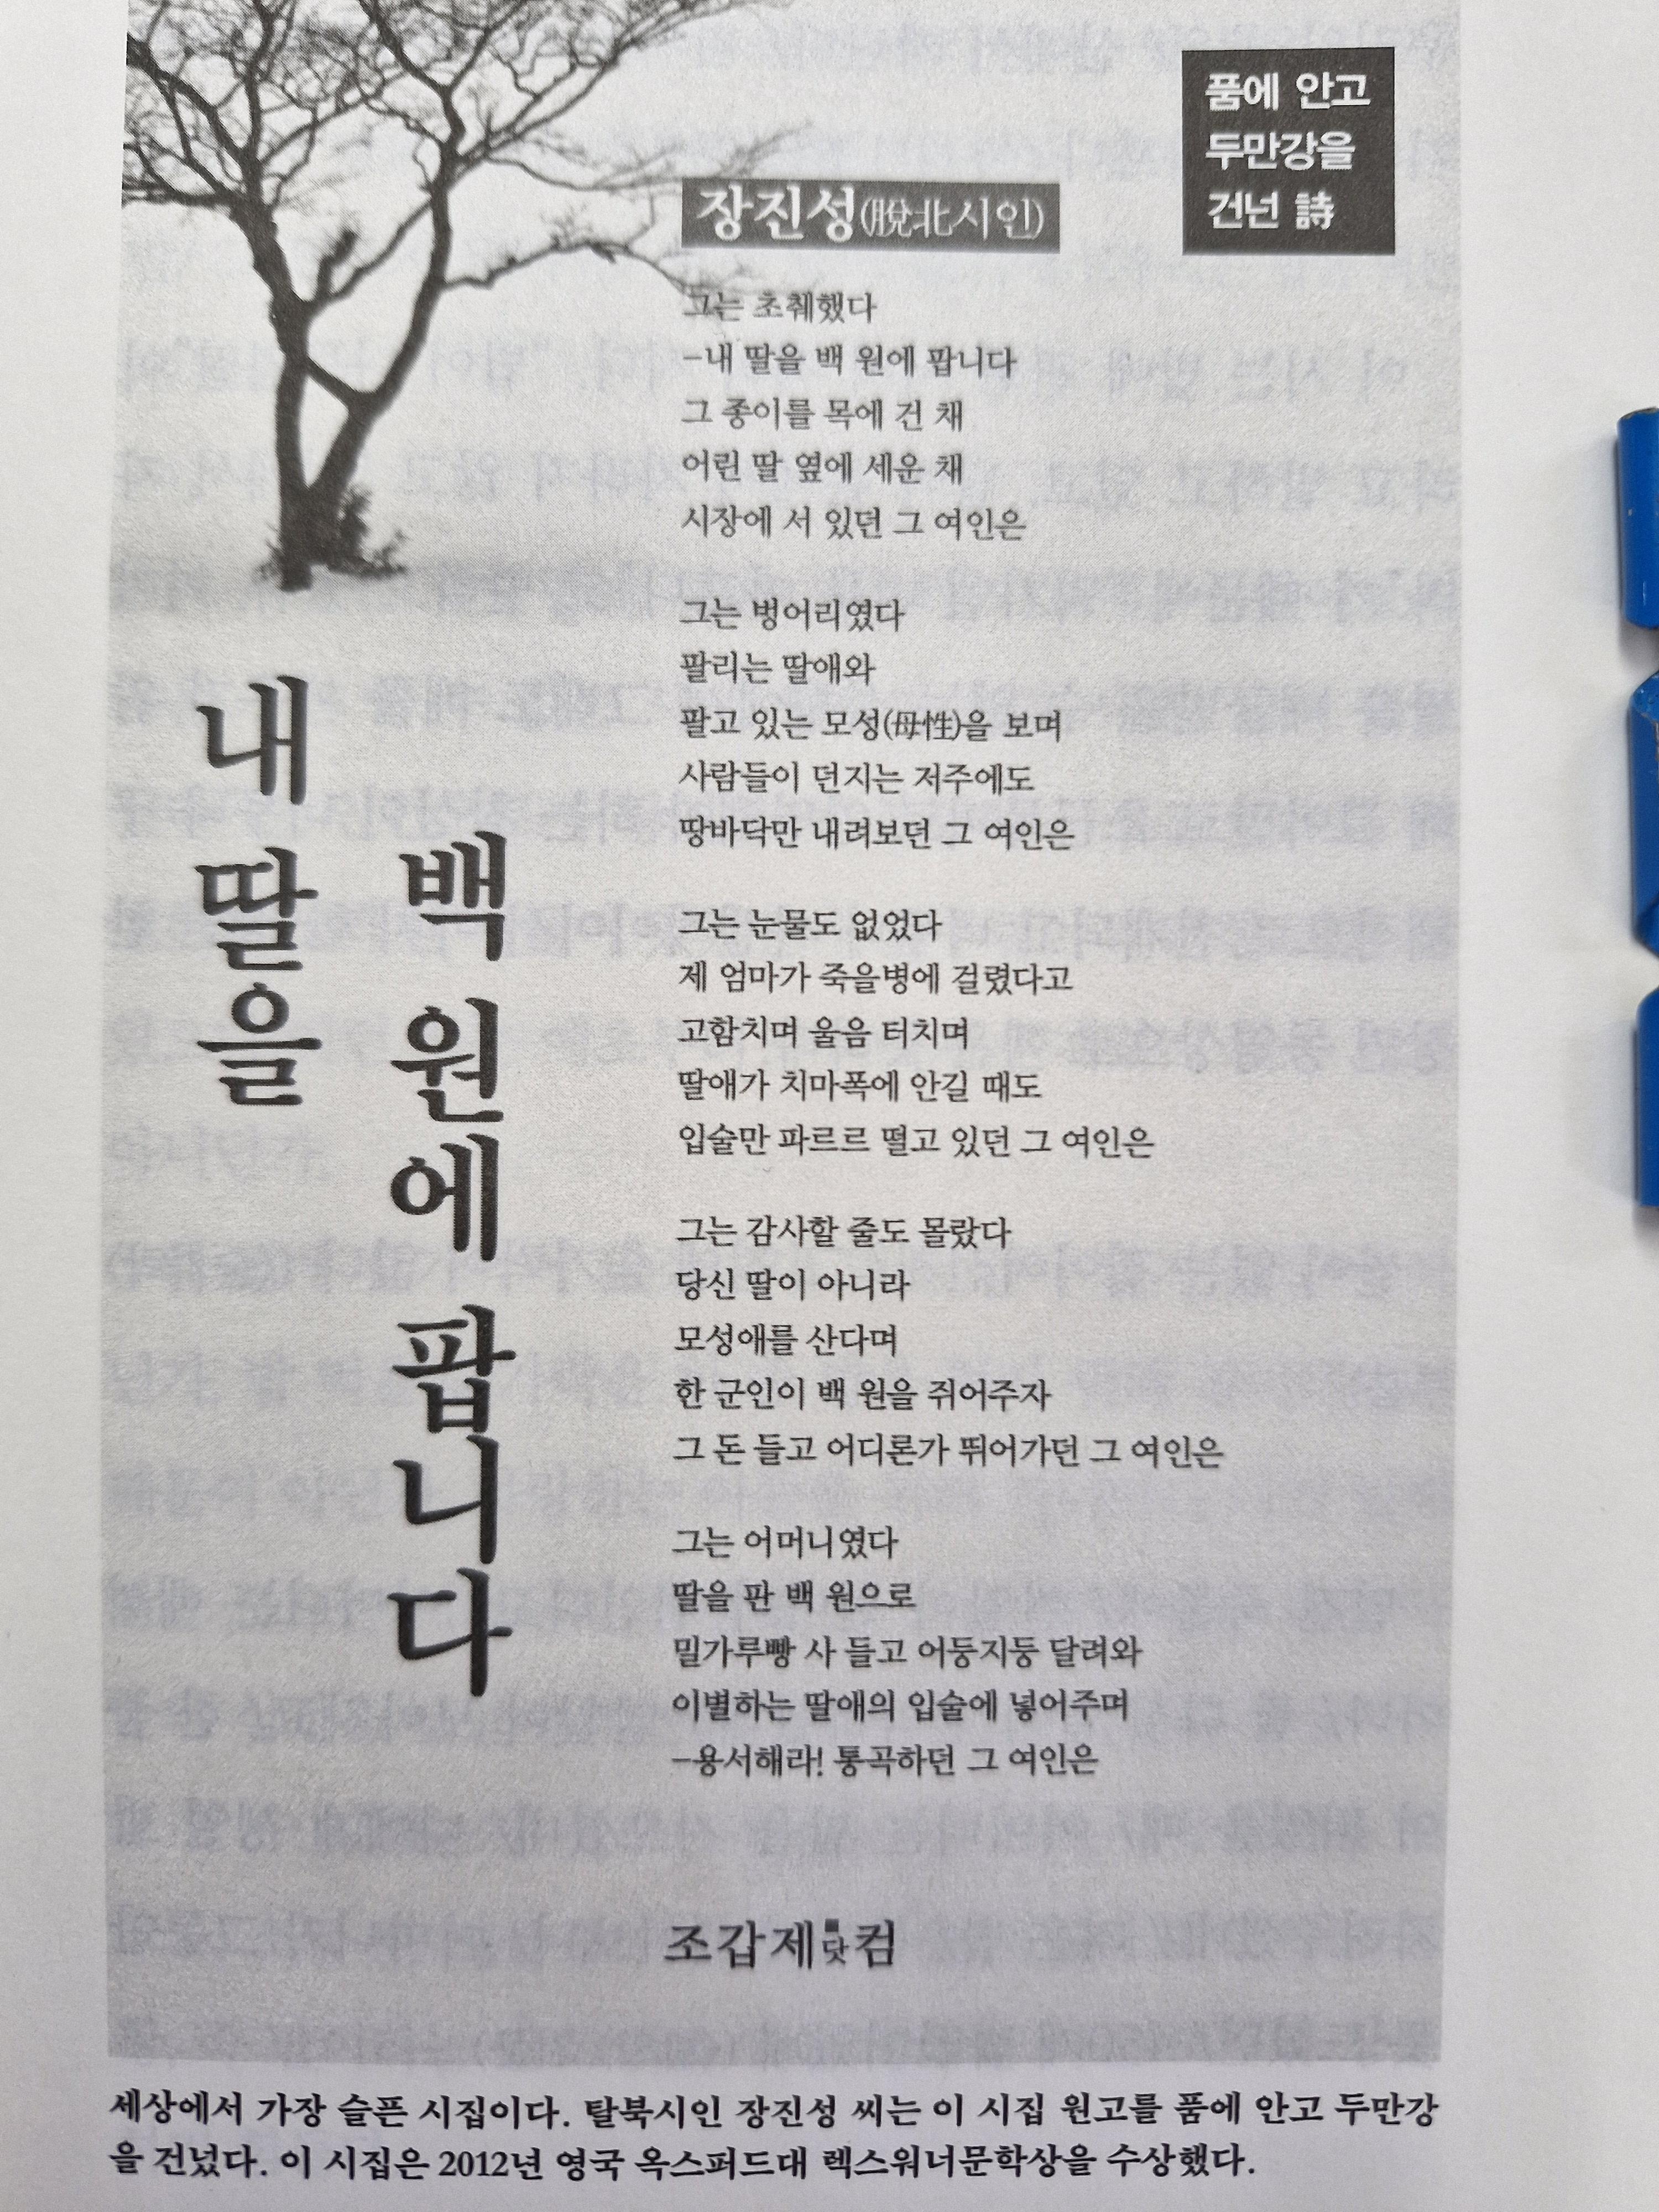 품에 안고
두만강을
건넌 詩
장진성(脫北시인)
그는 초췌했다
–내 딸을 백 원에 팝니다
그 종이를 목에 건 채
어린 딸 옆에 세운 채
시장에 서 있던 그 여인은
그는 벙어리였다
팔리는 딸애와
팔고 있는 모성(母性)을 보며
사람들이 던지는 저주에도
땅바닥만 내려보던 그 여인은
그는 눈물도 없었다
제 엄마가 죽을병에 걸렸다고
고함치며 울음 터치며
딸애가 치마폭에 안길 때도
입술만 파르르 떨고 있던 그 여인은
그는 감사할 줄도 몰랐다
당신 딸이 아니라
모성애를 산다며
한 군인이 백 원을 쥐어주자
그 돈 들고 어디론가 뛰어가던 그 여인은
그는 어머니였다
딸을 판 백 원으로
밀가루빵 사 들고 어둥지둥 달려와
이별하는 딸애의 입술에 넣어주며
–용서해라! 통곡하던 그 여인은
내 딸을
백 원에 팝니다
조갑제닷컴
세상에서 가장 슬픈 시집이다. 탈북시인 장진성 씨는 이 시집 원고를 품에 안고 두만강
을 건넜다. 이 시집은 2012년 영국 옥스퍼드대 렉스워너문학상을 수상했다.